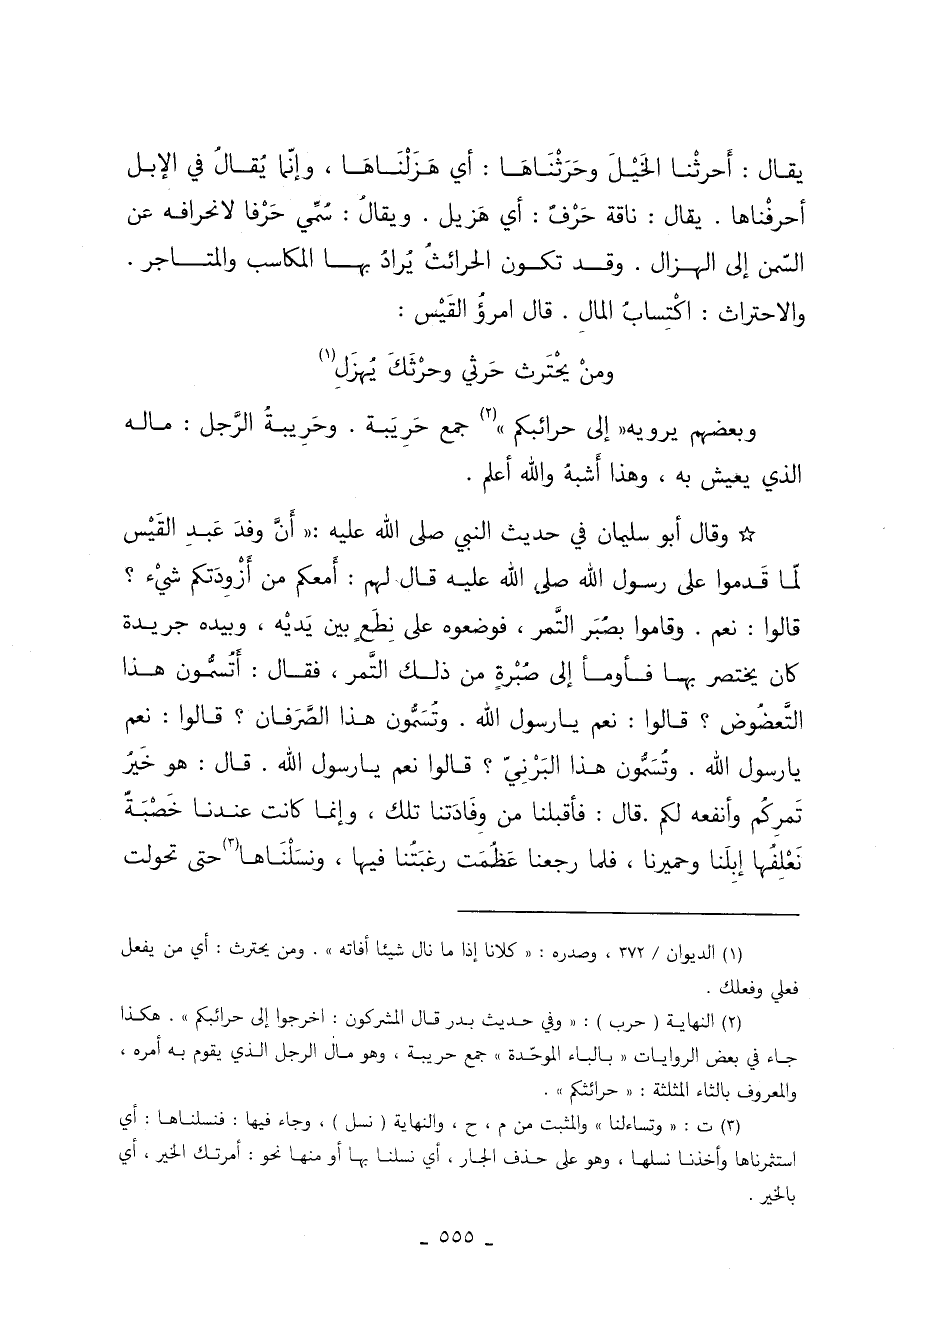 يقال : أَحرثْنا الخَيْلَ وحَرَثْنَاهَا : أي هَزَلْنَاهَا ، وإنّما يُقالُ في الإبل
أحرفْناها . يقال : ناقة حَرْفٌ : أي هَزيل . ويقالُ : سُمِّي حَرْفا لانحرافه عن
السّمن إلى الهزال . وقد تكون الحرائثُ يُرادُ بها المكاسب والمتاجر .
والاحتراث : اكْتِسابُ المال . قال امرؤُ القَيْس :
ومنْ يحْتَرث حَرثي وحرْثَكَ يُهزَلِ(١)
وبعضهم يرويه« إلى حرائبكم »(٢) جمع حَرِيَبة . وحَرِيبةُ الرَّجل : ماله
الذي يعيش به ، وهذا أَشبهُ والله أعلم .
☆ وقال أبو سليمان في حديث النبي صلى الله عليه :« أَنَّ وفدَ عَبد القَيْس
لمّا قَدموا على رسول الله صلى الله عليه قال لهم : أَمعكم من أَزْودَتكم شيْء ؟
قالوا : نعم . وقاموا بصُبَر التَّمر ، فوضعوه على نِطَعٍ بين يَديْه ، وبيده جريدة
كان يختصر بها فأومأ إلى صُبْرةٍ من ذلك التَّمر ، فقال : أَتُسمُّون هذا
التَّعضُوض ؟ قالوا : نعم يارسول الله . وتُسَمُّون هذا الصَّرَفان ؟ قالوا : نعم
يارسول الله . وتُسمُّون هذا البَرْنيّ ؟ قالوا نعم يارسول الله . قال : هو خَيرُ
تَمركُم وأنفعه لكم .قال : فأقبلنا من وفَادَتنا تلك ، وإنما كانت عندنا خَصْبَةٌ
نَعْلِفُها إبلَنا وحميرنا ، فلما رجعنا عَظُمَت رغبَتُنا فيها ، ونسَلْنَاها(٣)حتى تحولت
(١) الديوان / ٣٧٢ ، وصدره : « كلانا إذا ما نال شيئا أفاته » . ومن يحترث : أي من يفعل
فعلي وفعلك .
(٢) النهاية ( حرب ) : « وفي حديث بدر قال المشركون : اخرجوا إلى حرائبكم » . هكذا
جاء في بعض الروايات « بالباء الموحّدة » جمع حريبة ، وهو مال الرجل الذي يقوم به أمره ،
والمعروف بالثاء المثلثة : « حرائثكم » .
(٣) ت : « وتساءلنا » والمثبت من م ، ح ، والنهاية ( نسل ) ، وجاء فيها : فنسلناها : أي
استثمرناها وأخذنا نسلها ، وهو على حذف الجار ، أي نسلنا بها أو منها نحو : أمرتك الخير ، أي
بالخير .
_ ٥٥٥ _